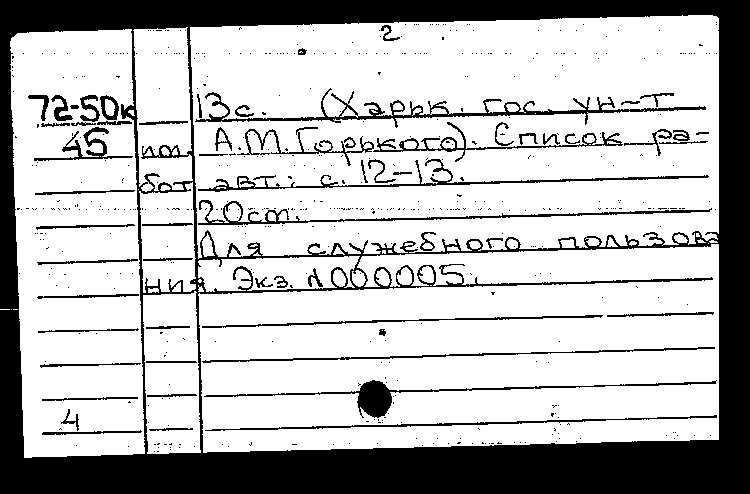 2
72-50к 13с. (Харьк. гос. ун-т
45 им. А.М.Горького). Список ра-
бот авт.: с. 12-13.
20см.
Для служебного пользова
ния. Экз. N000005.
4